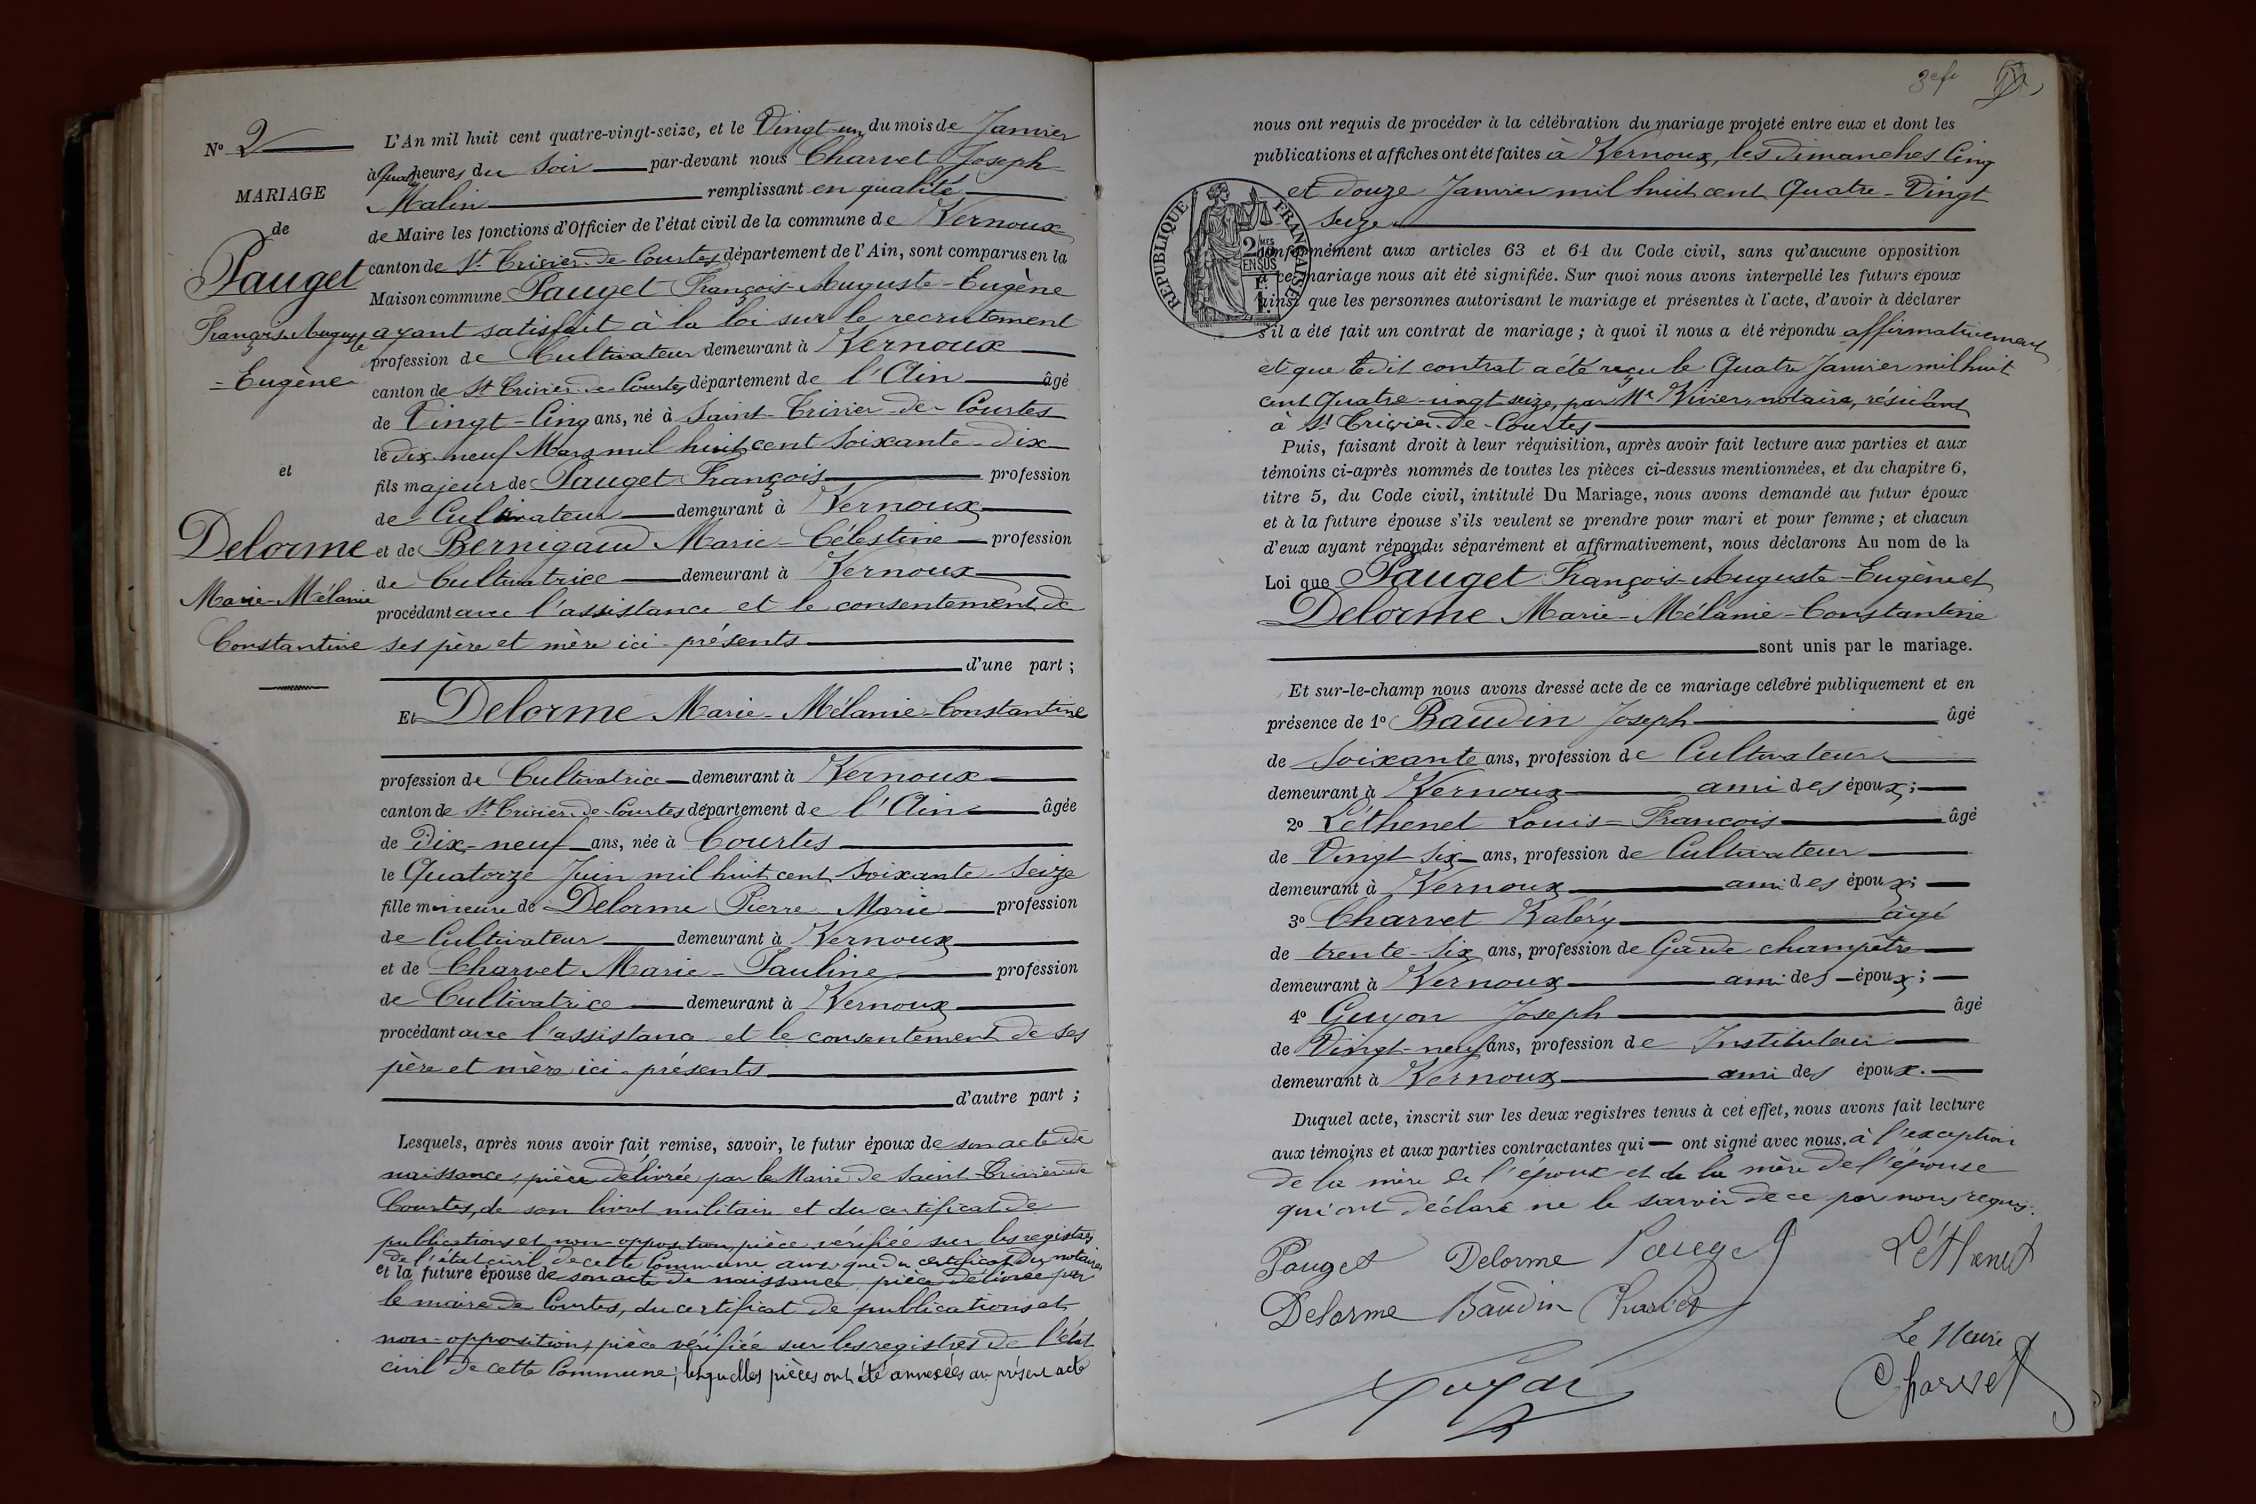 N° 2
MARIAGE
de
Pauget
François-Auguste
-Eugène
et
Delorme
Marie-Mélanie
Constantine
L'An mil huit cent quatre-vingt-seize, et le Vingt-un du mois de Janvier
à quatre heures du Soir par-devant nous Charvet Joseph
Malin remplissant en qualité
de Maire les fonctions d'Officier de l'état civil de la commune de Vernoux
canton de St Trivier-de-Courtes département de l'Ain, sont comparus en la
Maison commune Pauget François-Auguste-Eugène
ayant satisfait à la loi sur le recrutement
profession de Cultivateur demeurant à Vernoux
canton de St Trivier-de-Courtes département de l'Ain âgé
de Vingt-Cinq ans, né à Saint-Trivier-de-Courtes
le dix-neuf Mars mil huit cent soixante-dix
fils majeur de Pauget François profession
de Cultivateur demeurant à Vernoux
et de Bernigaud Marie-Célestine profession
de Cultivatrice demeurant à Vernoux
procédant avec l'assistance et le consentement de
ses père et mère ici-présents
d'une part ;
Et Delorme Marie-Mélanie-Constantine
profession de Cultivatrice demeurant à Vernoux
canton de St Trivier-de-Courtes département de l'Ain âgée
de Dix-neuf ans, née à Courtes
le Quatorze Juin mil huit cent soixante-seize
fille mineure de Delorme Pierre-Marie profession
de Cultivateur demeurant à Vernoux
et de Charvet Marie-Pauline profession
de Cultivatrice demeurant à Vernoux
procédant avec l'assistance et le consentement de ses
père et mère ici-présents
d'autre part ;
Lesquels, après nous avoir fait remise, savoir, le futur époux de son acte de
naissance, pièce délivrée par le Maire de Saint-Trivier-de
Courtes, de son livret militaire et du certificat de
publications et non-opposition, pièce vérifiée sur les registres
de l'état civil de cette Commune ainsi que du certificat du notaire
et la future épouse de son acte de naissance, pièce délivrée par
le maire de Courtes, du certificat de publications et
non-opposition, pièce vérifiée sur les registres de l'état
civil de cette Commune; lesquelles pièces ont été annexées au présent acte
3e f.
nous ont requis de procéder à la célébration du mariage projeté entre eux et dont les
publications et affiches ont été faites à Vernoux, les Dimanches Cinq
et douze Janvier mil huit cent Quatre-Vingt
seize
RÉPUBLIQUE FRANÇAISE
2 MES 10
EN SUS
1F.
conformément aux articles 63 et 64 du Code civil, sans qu'aucune opposition
à ce mariage nous ait été signifiée. Sur quoi nous avons interpellé les futurs époux
ainsi que les personnes autorisant le mariage et présentes à l'acte, d'avoir à déclarer
s'il a été fait un contrat de mariage ; à quoi il nous a été répondu affirmativement
et que ledit contrat a été reçu le Quatre Janvier mil huit
cent Quatre-vingt seize, par Me Vivier, notaire, résidant
à St Trivier-de-Courtes
Puis, faisant droit à leur réquisition, après avoir fait lecture aux parties et aux
témoins ci-après nommés de toutes les pièces ci-dessus mentionnées, et du chapitre 6,
titre 5, du Code civil, intitulé Du Mariage, nous avons demandé au futur époux
et à la future épouse s'ils veulent se prendre pour mari et pour femme ; et chacun
d'eux ayant répondu séparément et affirmativement, nous déclarons Au nom de la
Loi que Pauget François-Auguste-Eugène et
Delorme Marie-Mélanie-Constantine
sont unis par le mariage.
Et sur-le-champ nous avons dressé acte de ce mariage célébré publiquement et en
présence de 1° Baudin Joseph âgé
de Soixante ans, profession de Cultivateur
demeurant à Vernoux ami des époux ;
2° Léthenet Louis-François âgé
de Vingt-six ans, profession de Cultivateur
demeurant à Vernoux ami des époux ;
3° Charvet Valéry âgé
de trente-six ans, profession de Garde champêtre
demeurant à Vernoux ami des époux ;
4° Guyon Joseph âgé
de Vingt-neuf ans, profession de Instituteur
demeurant à Vernoux ami des époux.
Duquel acte, inscrit sur les deux registres tenus à cet effet, nous avons fait lecture
aux témoins et aux parties contractantes qui ont signé avec nous, à l'exception
de la mère de l'époux et de la mère de l'épouse
qui ont déclaré ne le savoir de ce par nous requis.
Pauget Delorme Pauget Léthenet
Delorme Baudin Charvet
Le Maire
Charvet